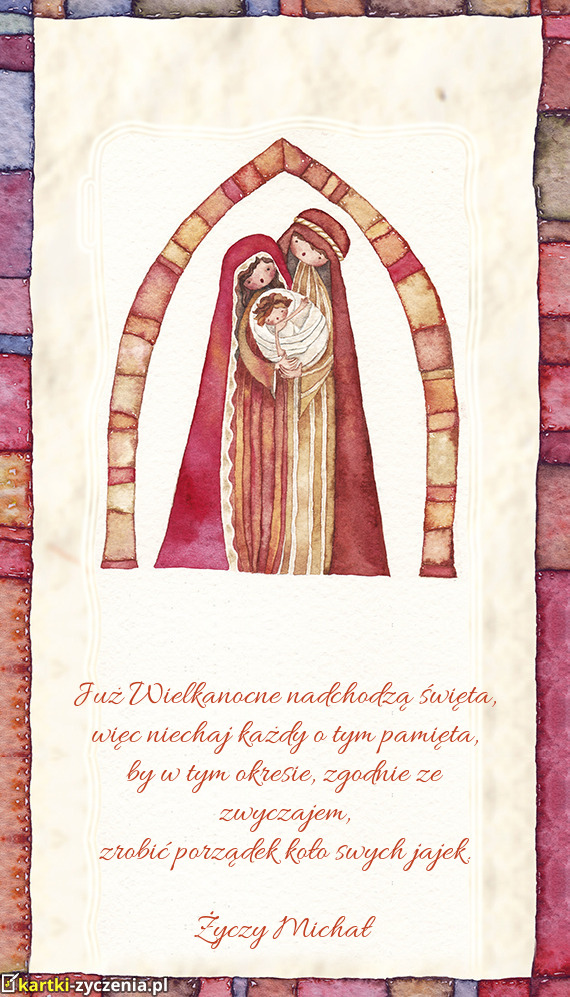 Już Wielkanocne nadchodzą święta,
więc niechaj każdy o tym pamięta,
by w tym okresie, zgodnie ze
zwyczajem,
zrobić porządek koło swych jajek.
Życzy Michał
kartki-zyczenia.pl